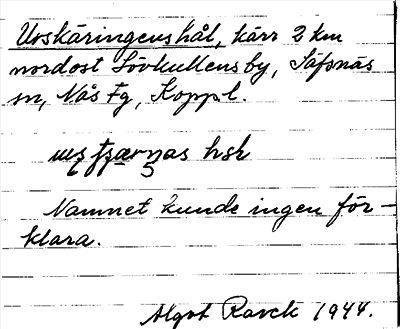 Urskäringens hål, kärr 2 km
nordost Lövkullens by, Säfsnäs
sn, Nås Fg, Koppl.
hsl
Namnet kunde ingen för-
klara.
Algot Rasck 1944.